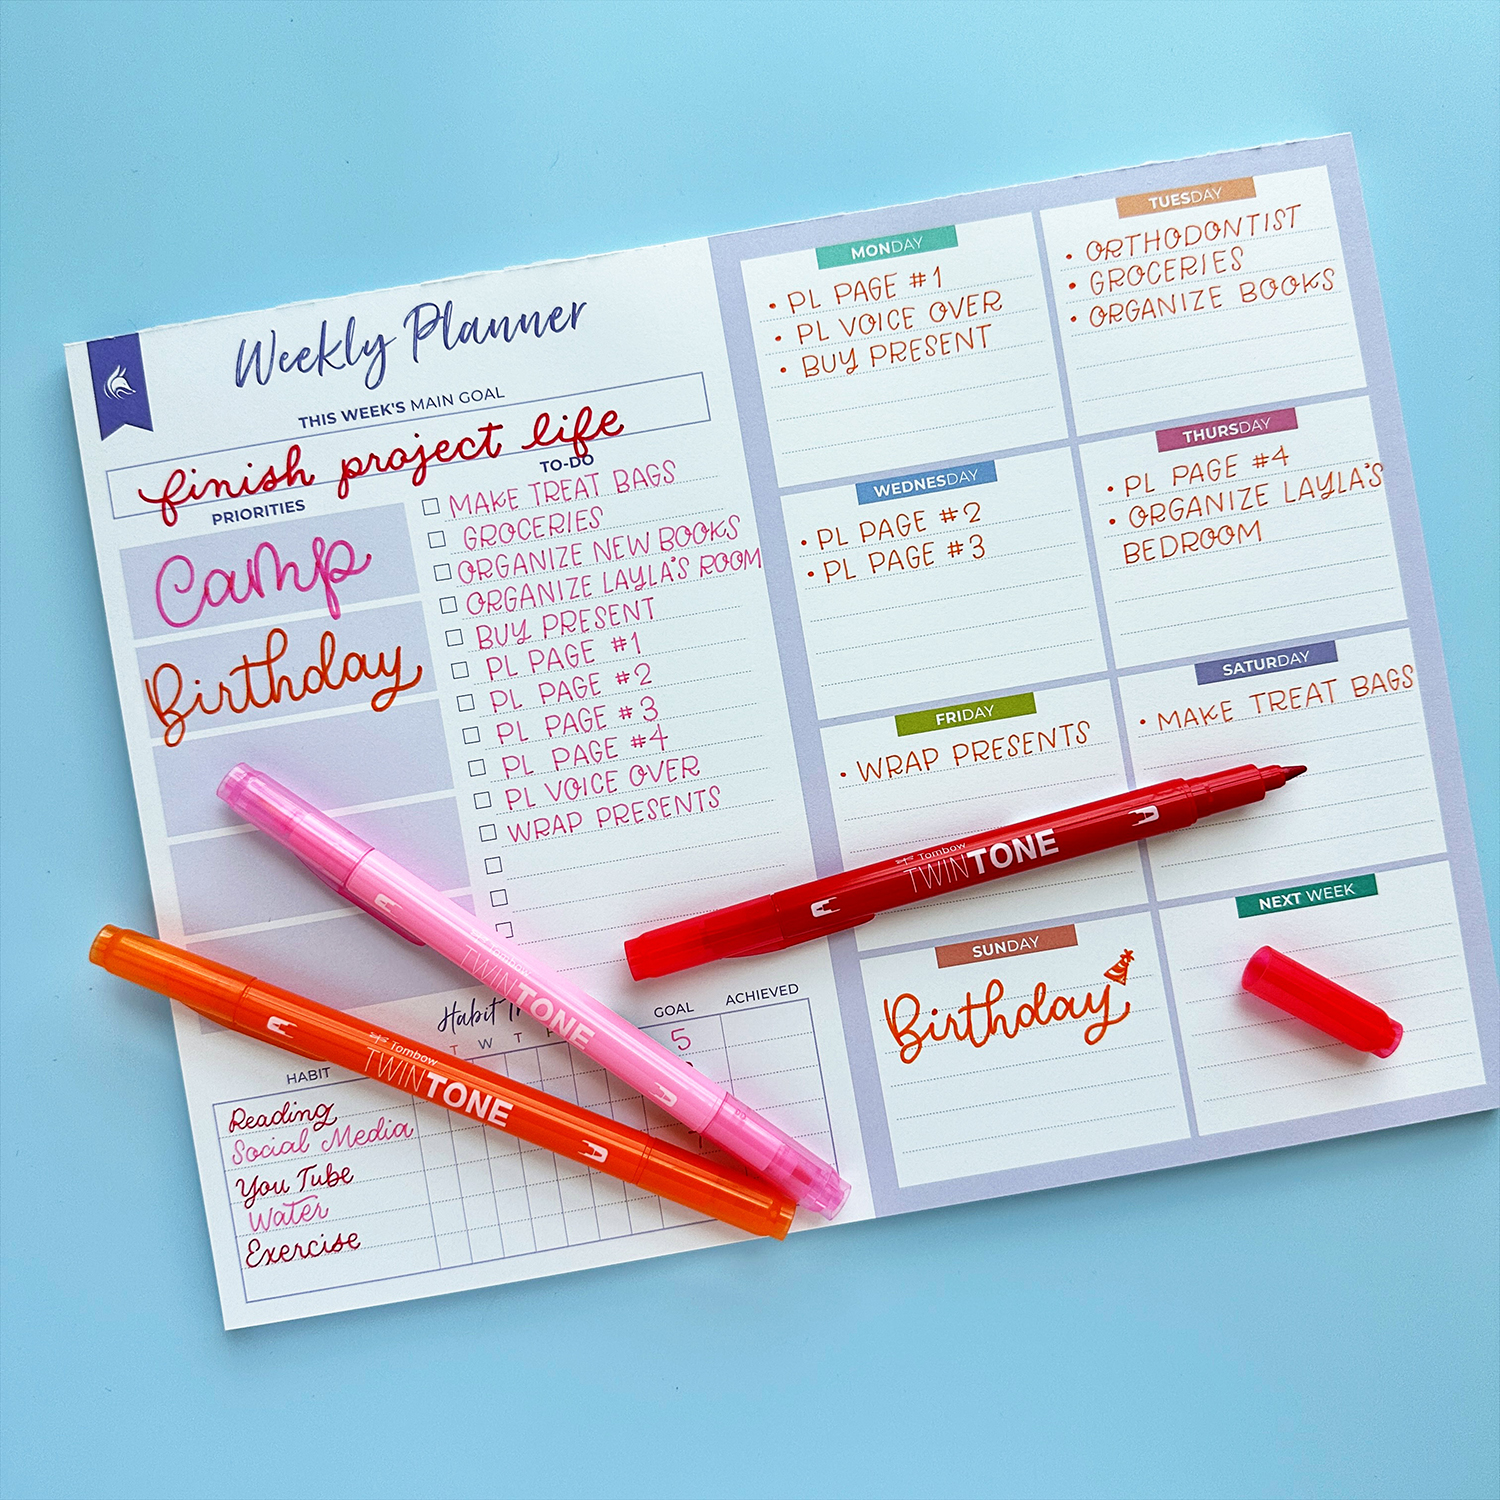 Weekly Planner
THIS WEEK'S MAIN GOAL
finish project life
PRIORITIES
Camp
Birthday
TO-DO
MAKE TREAT BAGS
GROCERIES
ORGANIZE NEW BOOKS
ORGANIZE LAYLA'S ROOM
BUY PRESENT
PL PAGE #1
PL PAGE #2
PL PAGE #3
PL PAGE #4
PL VOICE OVER
WRAP PRESENTS
Habit
T W T
GOAL
ACHIEVED
5
HABIT
Reading
Social Media
You Tube
Water
Exercise
MONDAY
• PL PAGE #1
• PL VOICE OVER
• BUY PRESENT
TUESDAY
• ORTHODONTIST
• GROCERIES
• ORGANIZE BOOKS
WEDNESDAY
• PL PAGE #2
• PL PAGE #3
THURSDAY
• PL PAGE #4
• ORGANIZE LAYLA'S
BEDROOM
FRIDAY
• WRAP PRESENTS
SATURDAY
• MAKE TREAT BAGS
SUNDAY
Birthday
NEXT WEEK
Tombow
TWINTONE
Tombow
TWINTONE
Tombow
TWINTONE